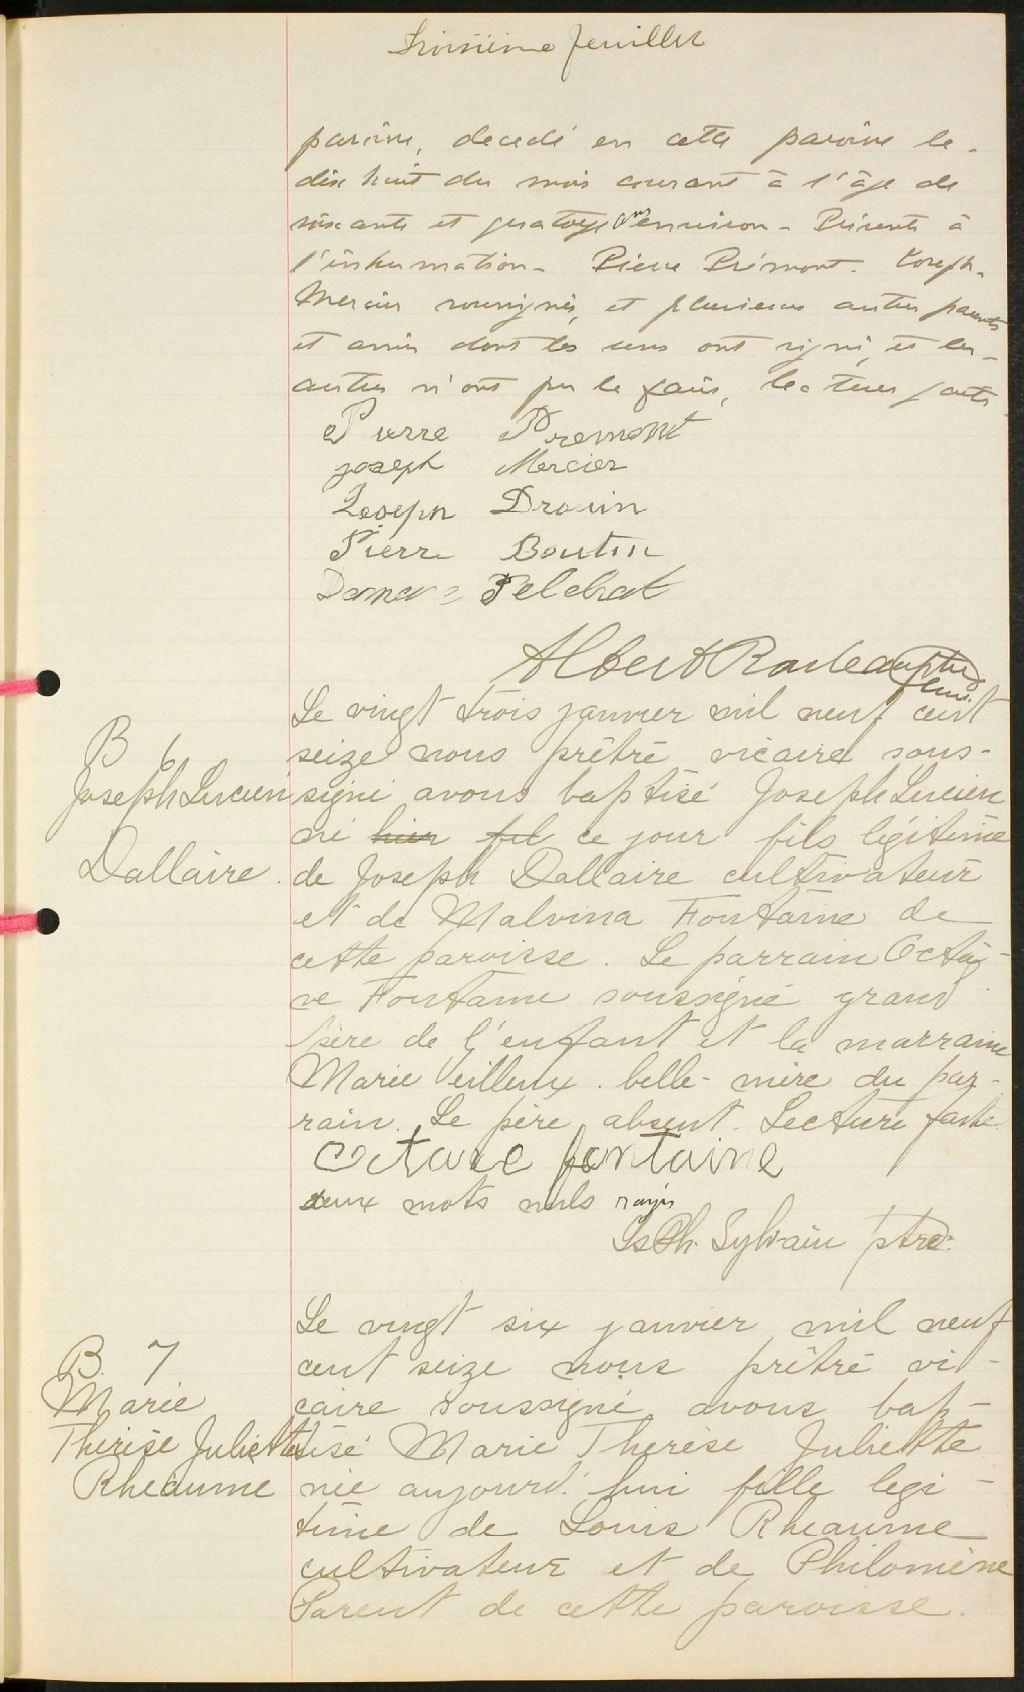 Troisième feuillet
paroisse, decedé en cette paroisse le
dix huit du mois courant à l'âge de
soixante et quatorze ans environ - Présents à
l'inhumation - Pierre Prémont. Joseph
Mercier soussignés, et plusieurs autres parents
et amis dont les uns ont signé, et les
autres n'ont pu le faire, lecture faite.
Pierre Premont
joseph Mercier
Joseph Drouin
Pierre Boutin
Pelchat
Albert Ptre
Le vingt trois janvier mil neuf cent
B 6
seize nous prêtre vicaire sous-
Joseph Lucien
signé avons baptisé Joseph Lucien
né hier fil ce jour fils légitime
Dallaire.
de Joseph Dallaire cultivateur
et de Malvina Fontaine de
cette paroisse. Le parrain Octa-
ve Fontaine soussigné grand
père de l'enfant et la marraine
Marie Veilleux. belle-mère du par-
rain. Le père absent. Lecture faite.
Octave fontaine
deux mots nuls rayés
Ph. Sylvain ptre.
Le vingt six janvier mil neuf
B. 7
cent seize nous prêtre vi-
Marie
caire soussigné avons bap-
Thérèse Juliette
tisé Marie Thérèse Juliette
Rheaume
née aujourd'hui fille légi-
time de Louis Rheaume
cultivateur et de Philomène
Parent de cette paroisse.